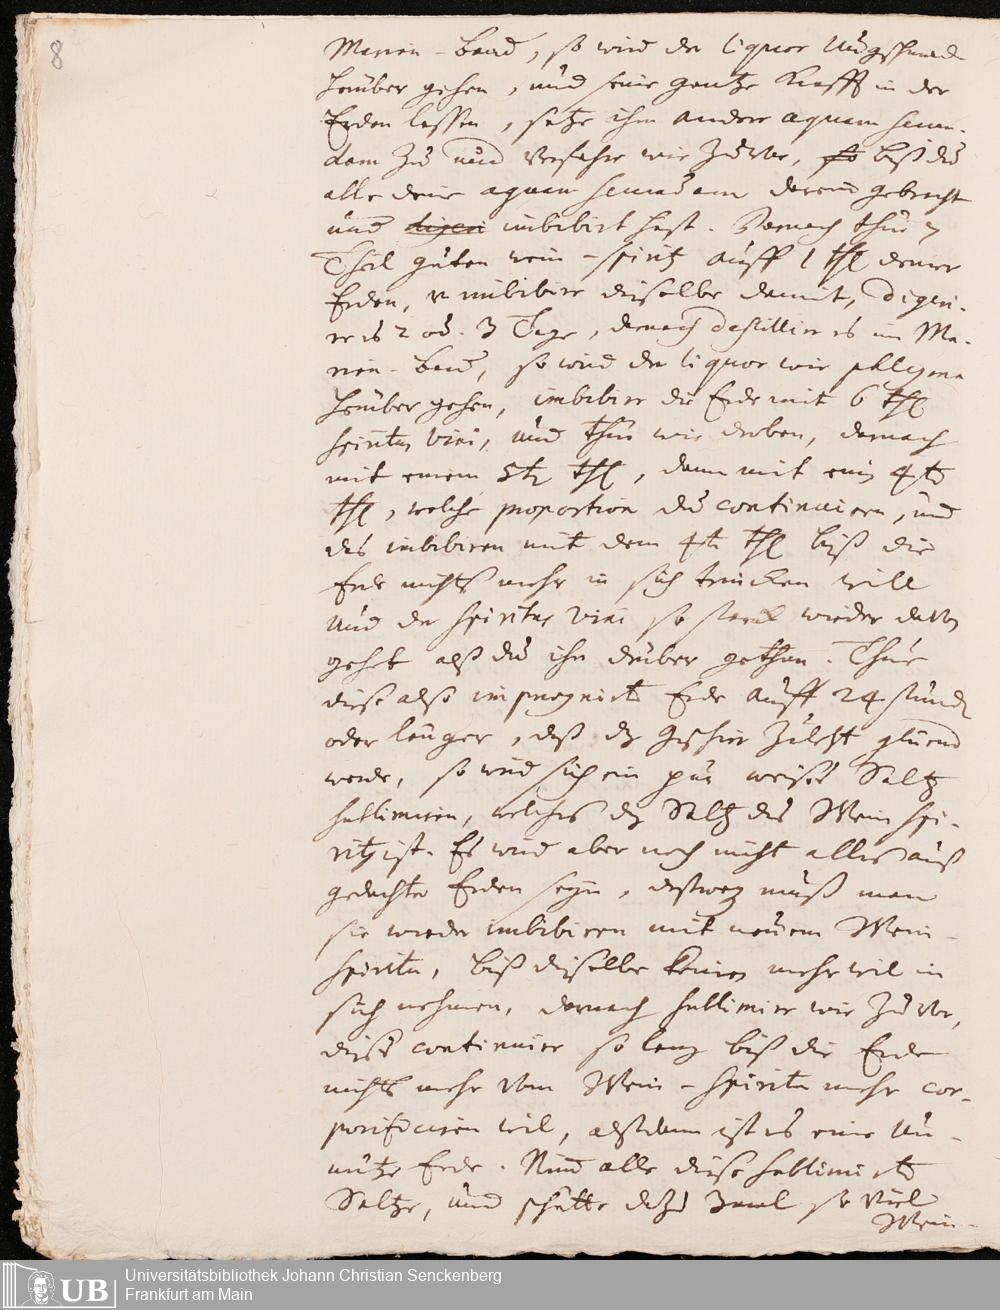 8
Marien-Baad, so wird der liquor Ungeschmack
herüber gehen, und seine gantze Krafft in der
Erden lassen, setze ihm andere aquam secun-
dam zu und verfahre wie zuvor, biß du
alle deine aquam secundam darein gebracht
und digeri imbibirt hast. Darnach thue 7
Theil guten wein-spiritq auff 1 thl deiner
Erden, v imbibire dieselbe damit, digeri-
re es 2 od. 3 Tage, darnach destillir es im Ma-
rien-Baad, so wird der liquor wie phlegma
herüber gehen, imbibire die Erde mit 6 thl
spiritus vini, und thue wie droben, darnach
mit einem 5te thl, dann mit ein 4te
thl, welche proportion du continuiren, und
des imbibiren mit dem 4te thl biß die
Erde nichts mehr in sich trincken will
Und der spiritus vini so starck wieder davon
gehet alß du ihn drüber gethan. Thue
diese also impregnirte Erde auff 24 stunde
oder länger, daß dz geschirr zuletzt glüend
werde, so wird sich ein pur weises Saltz
sublimiren, welches dz Saltz des Wein spi-
ritq ist. Es wird aber noch nicht alles auß
gedachter Erden seyn, destweg muß man
sie wieder imbibiren mit neuem Wein-
spiritu, biß dieselbe keinen mehr wil in
sich nehmen, darnach sublimir wie zuvor,
dises continuire so lang biß die Erde
nichts mehr vom Wein-spiritu mehr cor-
porificiren wil, alßdann ist es eine un-
nütze Erde. Nimb alle diese sublimirte
Saltze, und schütte dazu 3mal so viel
Wein-
UB Universitätsbibliothek Johann Christian Senckenberg
Frankfurt am Main